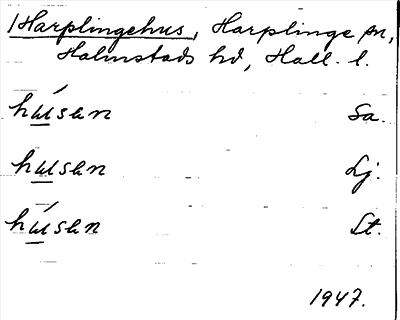 /Harplingehus, Harplinge sn,
Halmstads hd, Hall. l.
húsen Sa.
husen Lj.
húsen St.
1947.